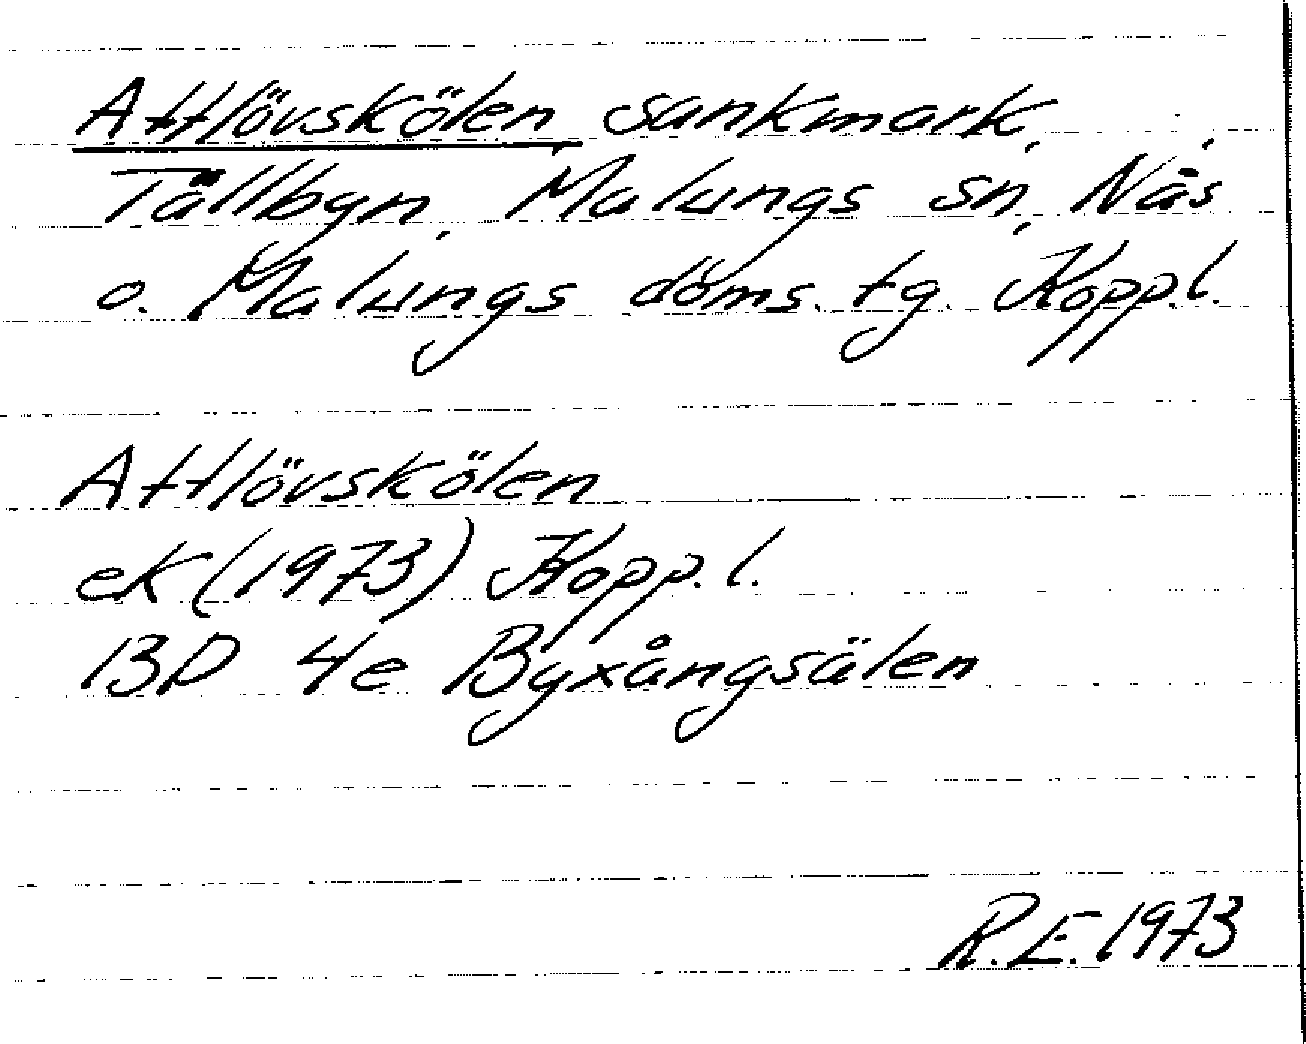 Attlövskölen, sankmark,
Tällbyn, Malungs sn, Nås
o. Malungs doms. tg. Kopp.l.
Attlövskölen
ek (1973) Kopp.l.
13D 4e Byxångsälen
R.E. 1973